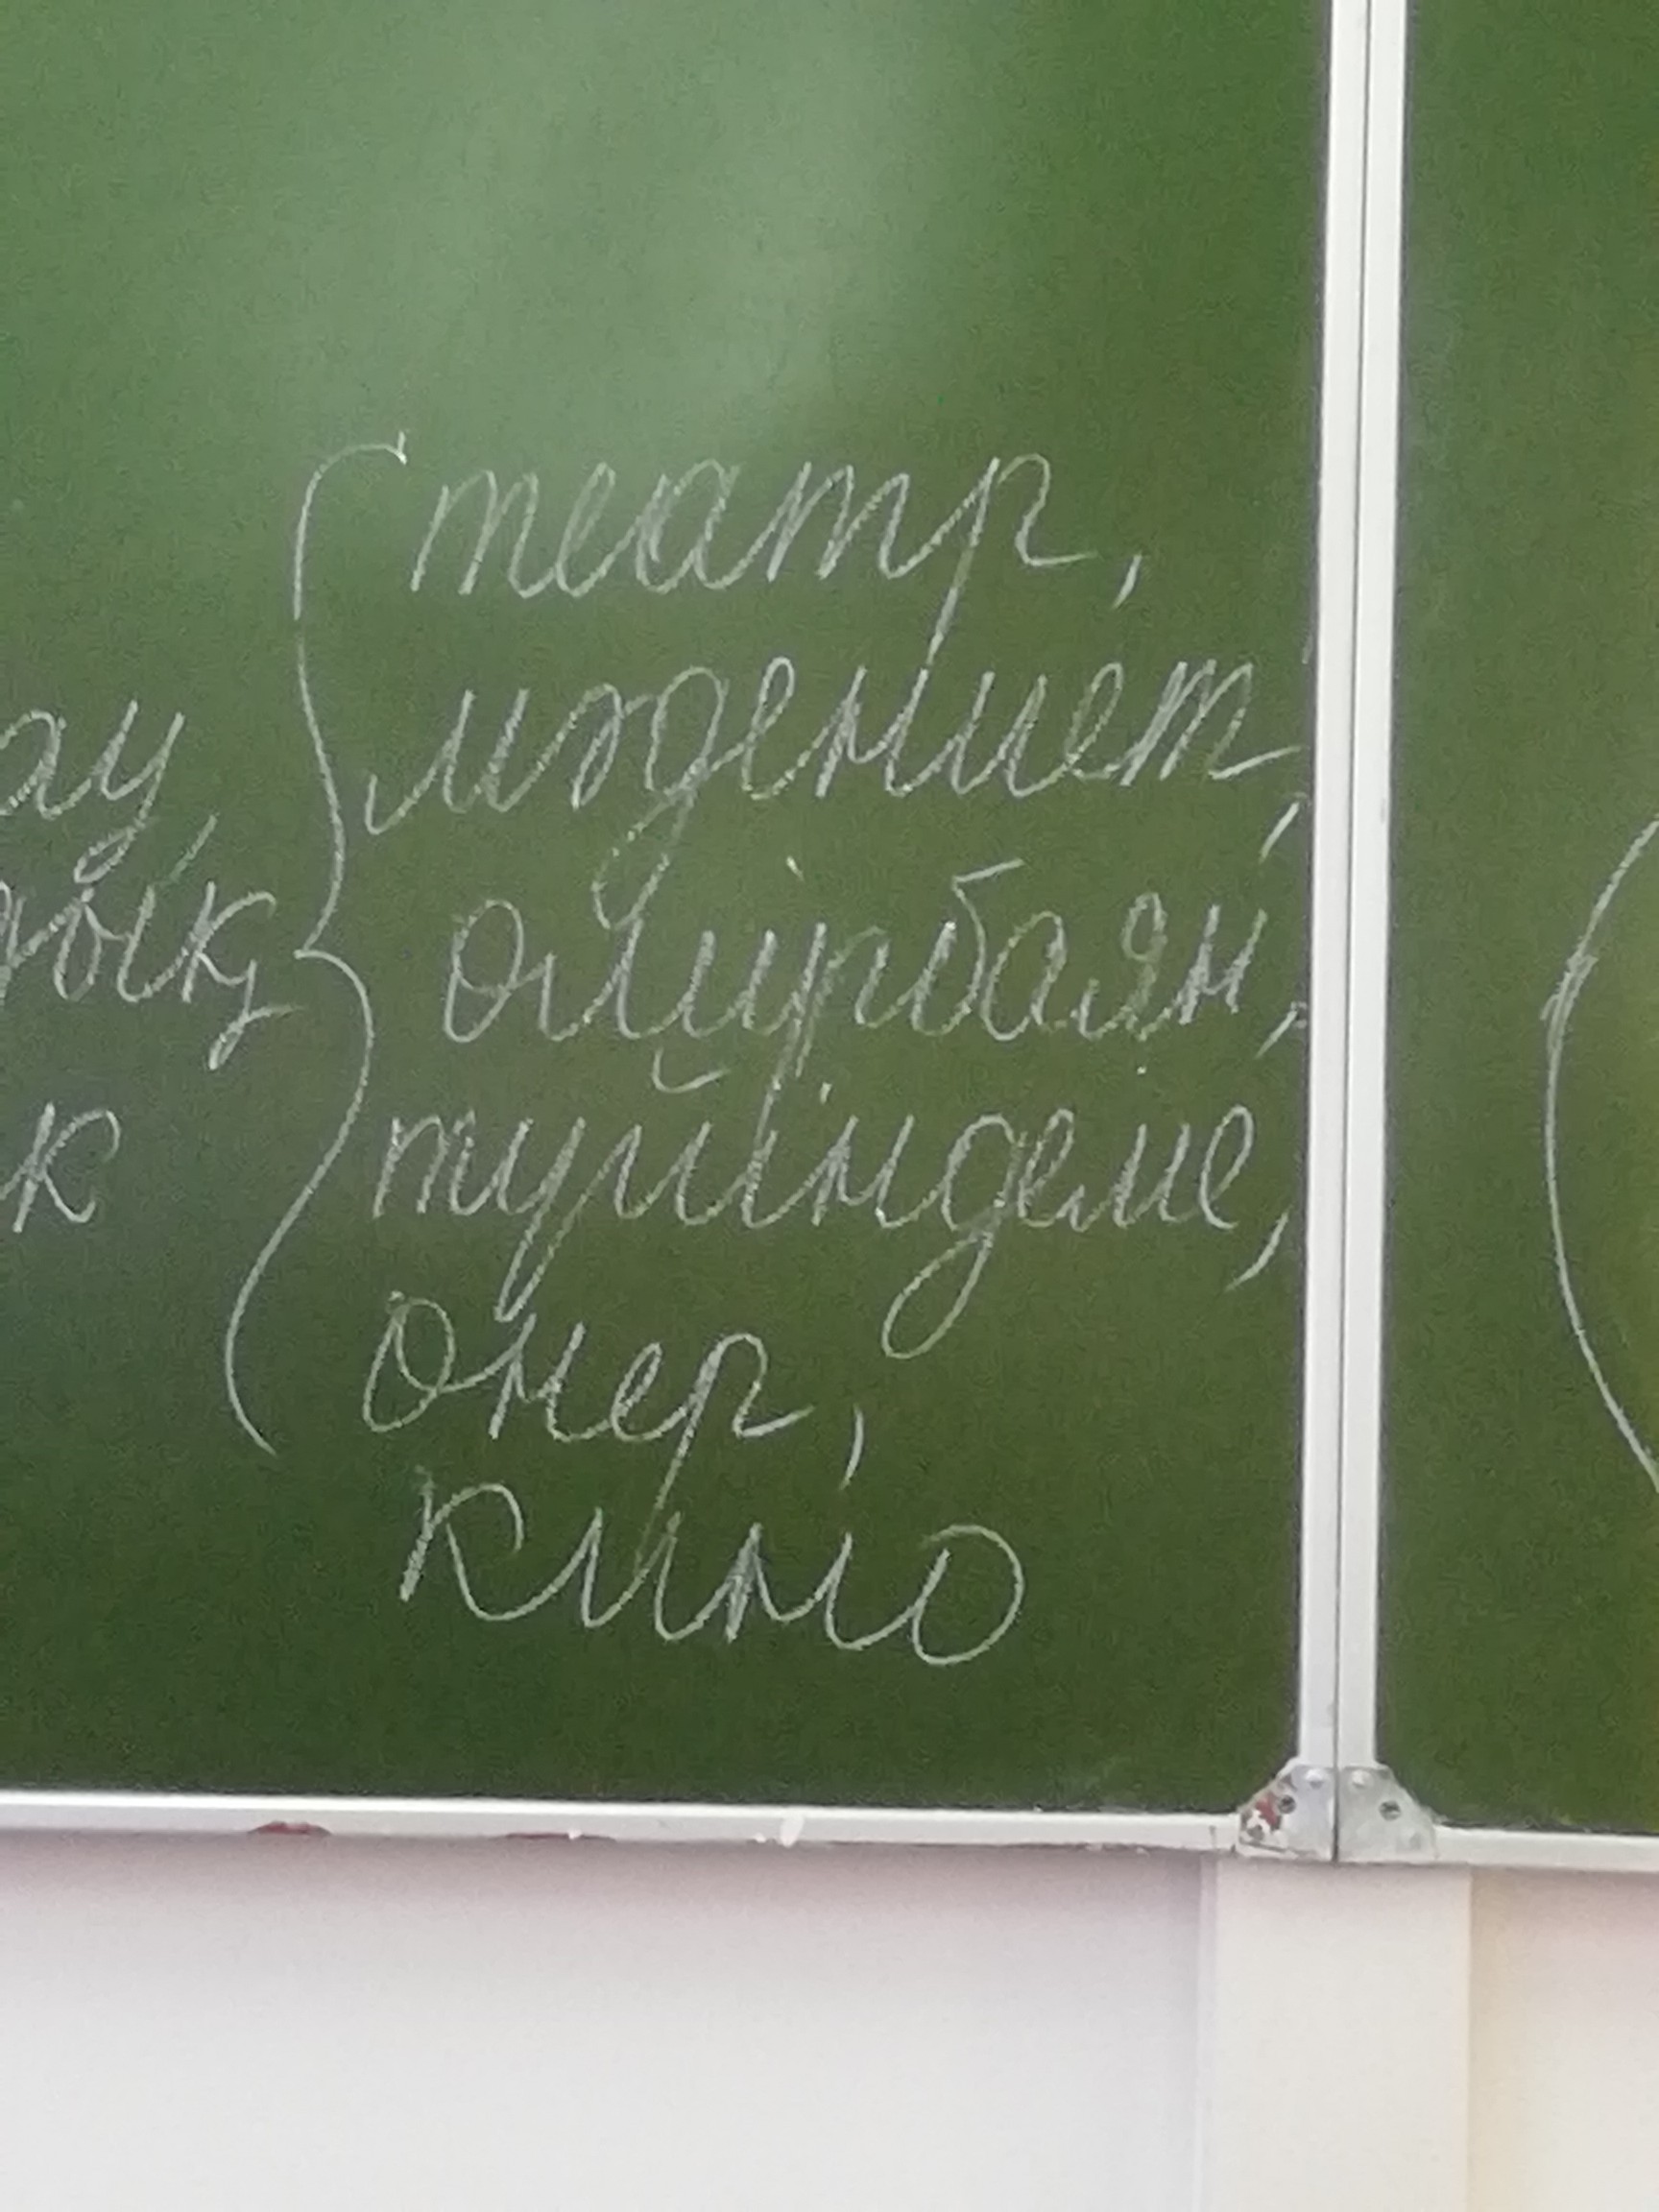 театр,
мәдениет,
өмірбаян,
түйіндеме,
өнер,
кино